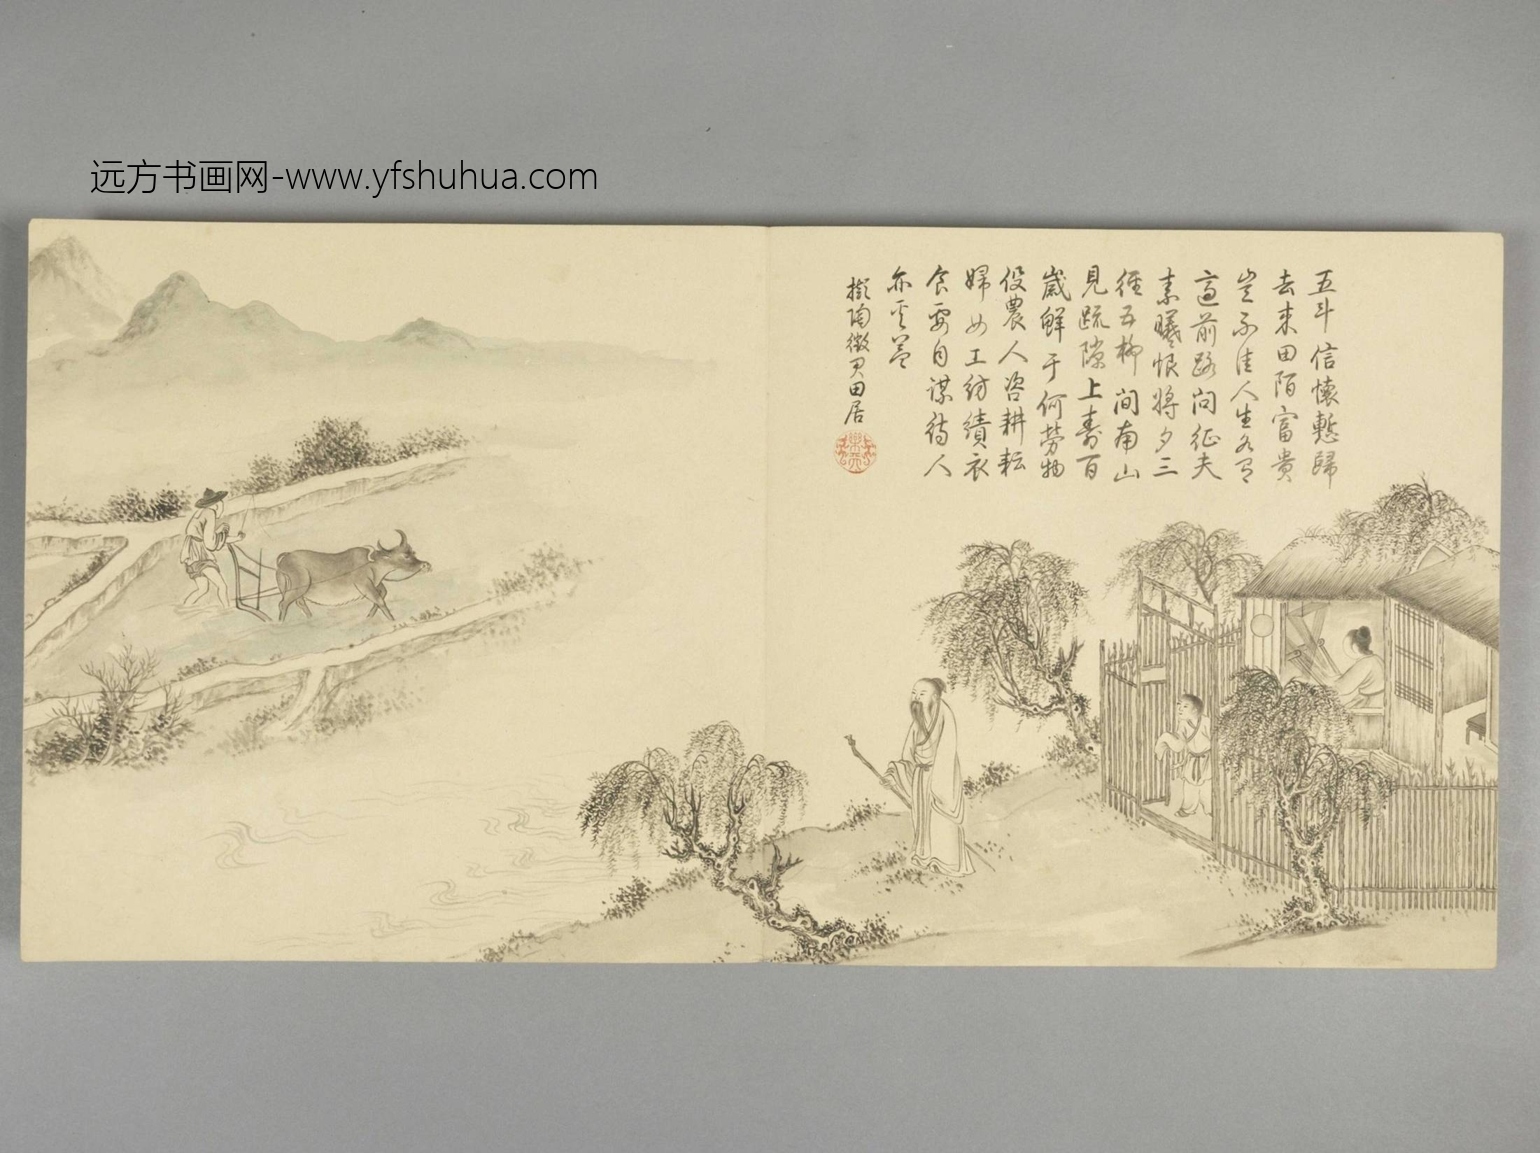 远方书画网-www.yfshuhua.com
五斗信懷慙歸
去来田陌富貴
豈不佳人生各有
適前路问征夫
素曦恨將夕三
徑五柳间南山
見疏隙上壽百
歲鮮于何勞物
役農人咨耕耘
婦女工紡績衣
食要自謀待人
亦奚益
擬陶徵君田居